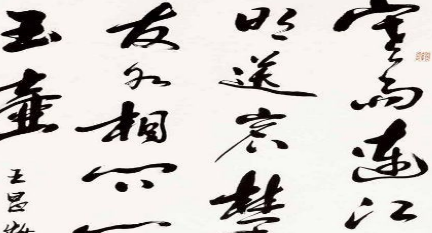 寒雨連江
明送客楚
友如相問一
玉壺
王昌齡